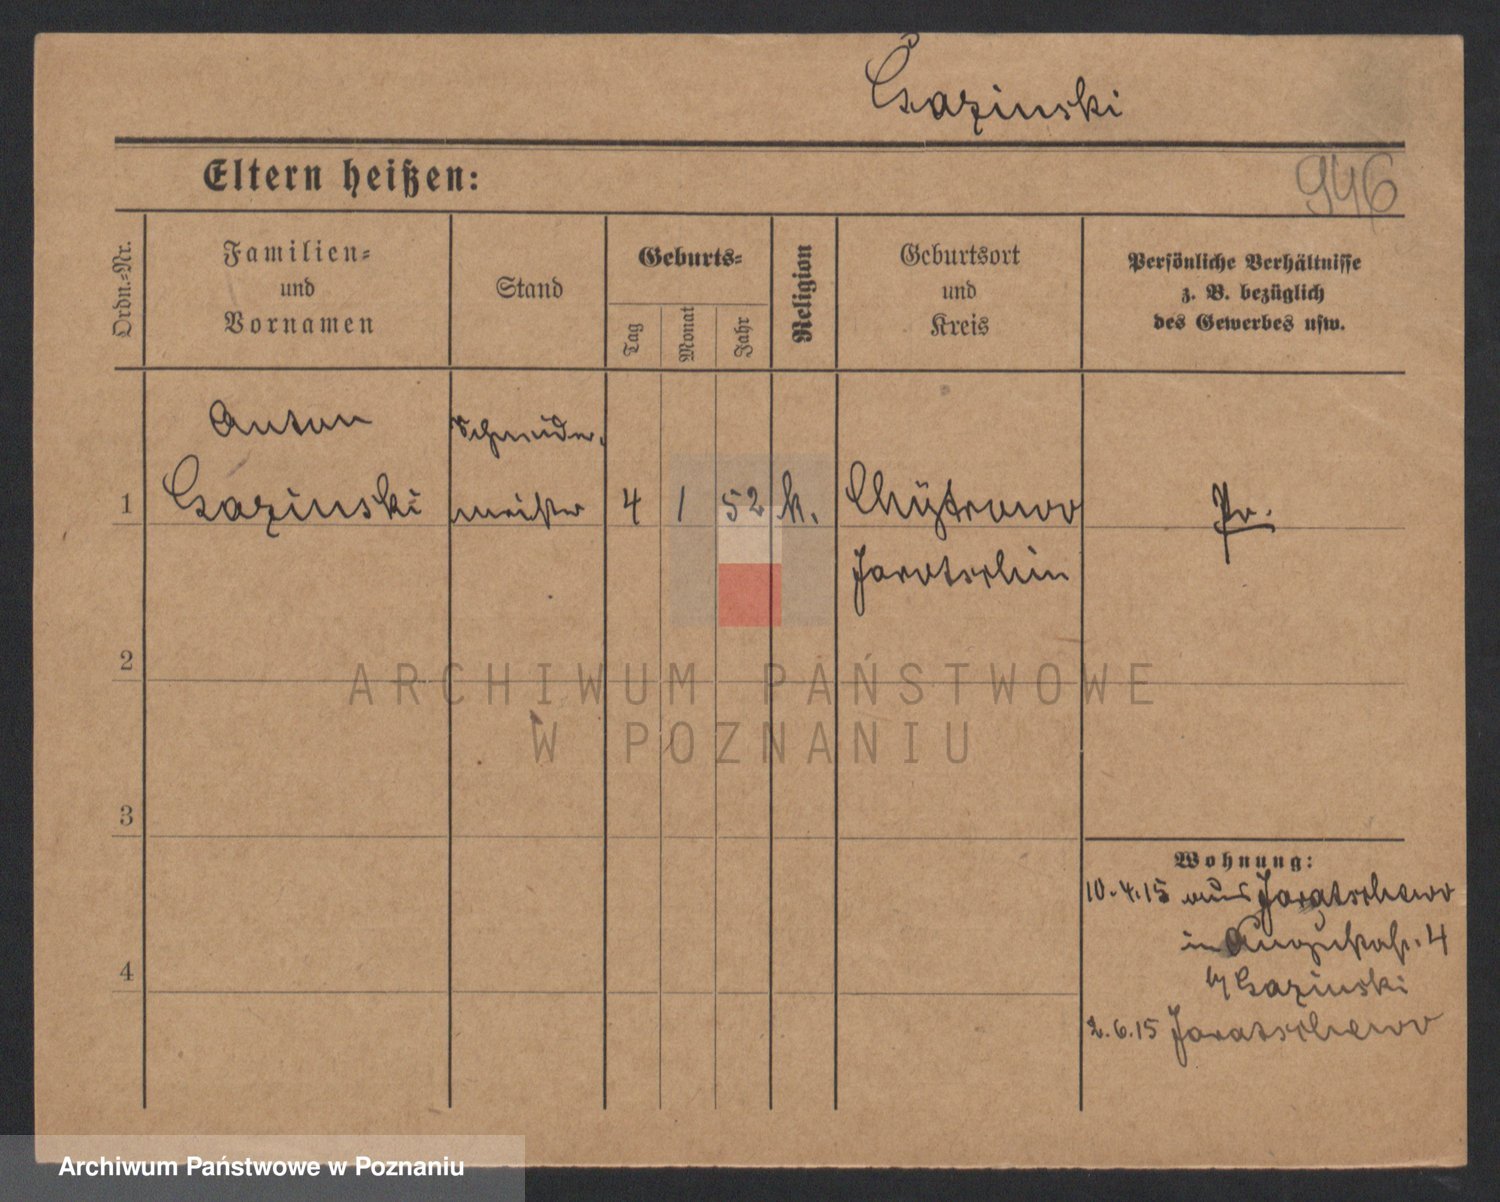 Czazinski
946
Eltern heißen:
Ordn.-Nr.
Familien-
und
Vornamen
Stand
Geburts-
Tag
Monat
Jahr
Religion
Geburtsort
und
Kreis
Persönliche Verhältnisse
z. B. bezüglich
des Gewerbes usw.
Anton
Schneider-
1
meister
4 1 52 k.
Pr.
2
3
4
Wohnung:
10.4.15 aus Jaratschewo
in 4
2.6.15 Jaratschewo
ARCHIWUM PAŃSTWOWE
W POZNANIU
Archiwum Państwowe w Poznaniu